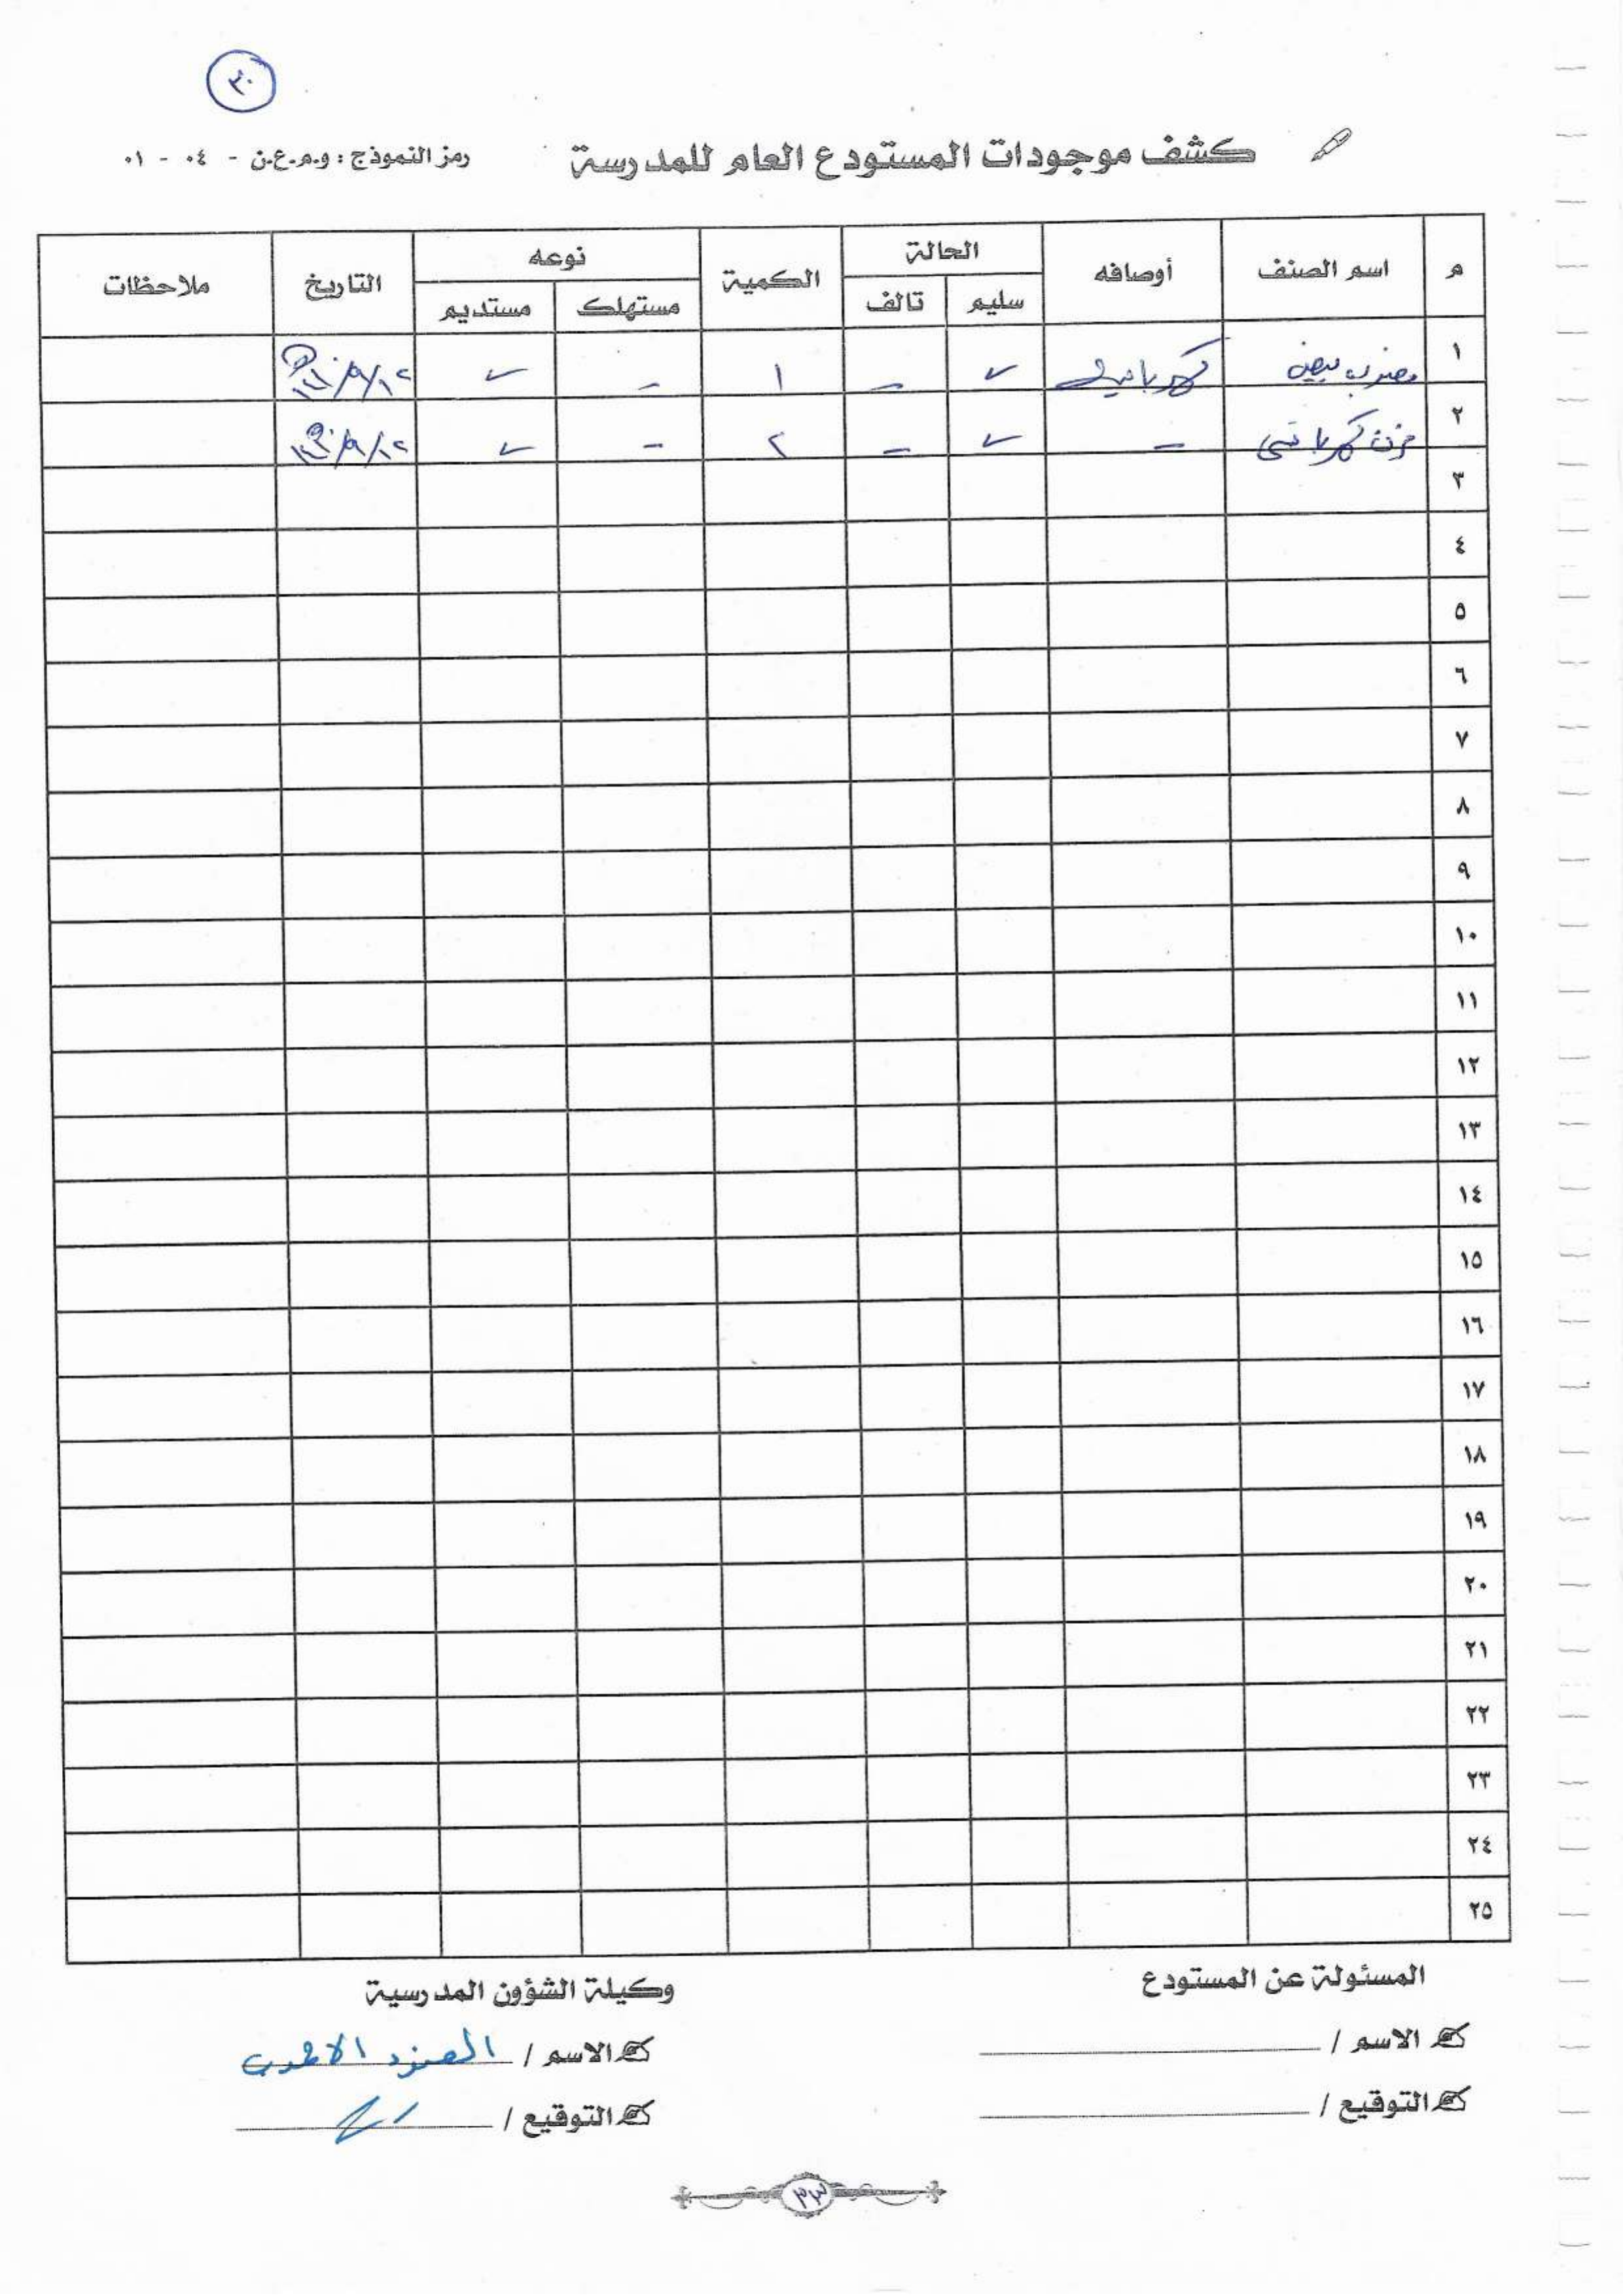 ٣٠
كشف موجودات المستودع العام للمدرسة
رمز النموذج : و.م.ع.ن - ٠٤ - ٠١
م اسم الصنف أوصافه الحالة الكمية نوعه التاريخ ملاحظات
سليم تالف مستهلك مستديم
١ مضرب بيض كهربائي ✓ – ١ – ✓
٢ فرن كهربائي – ✓ – ٢ – ✓
٣
٤
٥
٦
٧
٨
٩
١٠
١١
١٢
١٣
١٤
١٥
١٦
١٧
١٨
١٩
٢٠
٢١
٢٢
٢٣
٢٤
٢٥
المسئولة عن المستودع
الاسم /
التوقيع /
وكيلة الشؤون المدرسية
الاسم / العنود
التوقيع /
٣٣